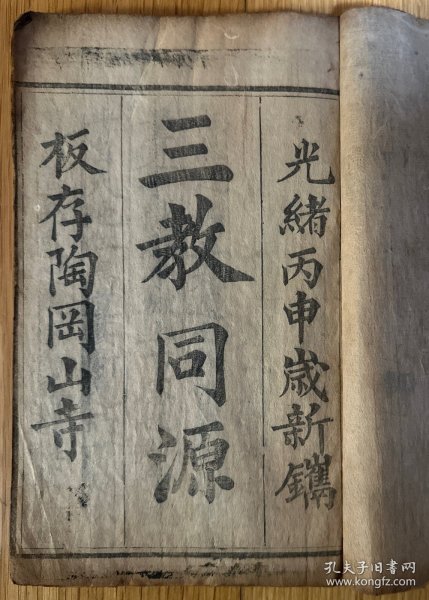 光緒丙申歲新鐫
三教同源
板存陶岡山寺
孔夫子旧书网
www.kongfz.com